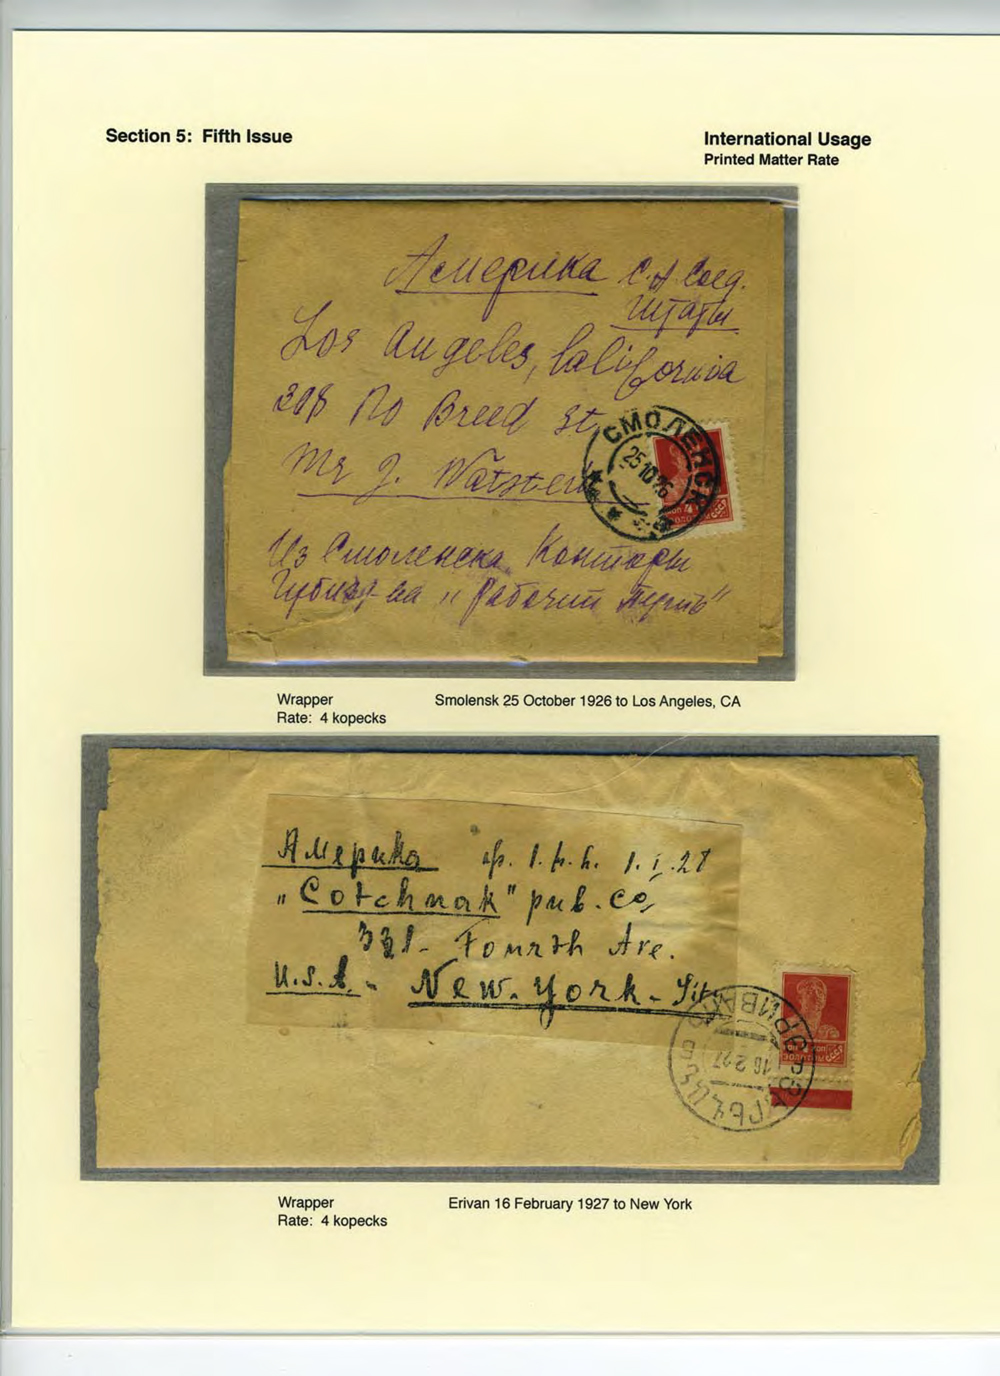 Section 5: Fifth Issue
International Usage
Printed Matter Rate
Америка С. А Соед.
Штаты
Los Angeles, California
308 No Breed St
Mr J. Watstein
СМОЛЕНСК
25 10 26
Из Смоленска Конторы
"Рабочий Путь"
Wrapper
Smolensk 25 October 1926 to Los Angeles, CA
Rate: 4 kopecks
Америка
"Cotchnak" pub. Co,
331- Fourth Ave.
U.S.A. - New-York-Sit.
ЭРИВАНЬ
16 2 27
ЗОЛОТОМ СССР
Wrapper
Erivan 16 February 1927 to New York
Rate: 4 kopecks